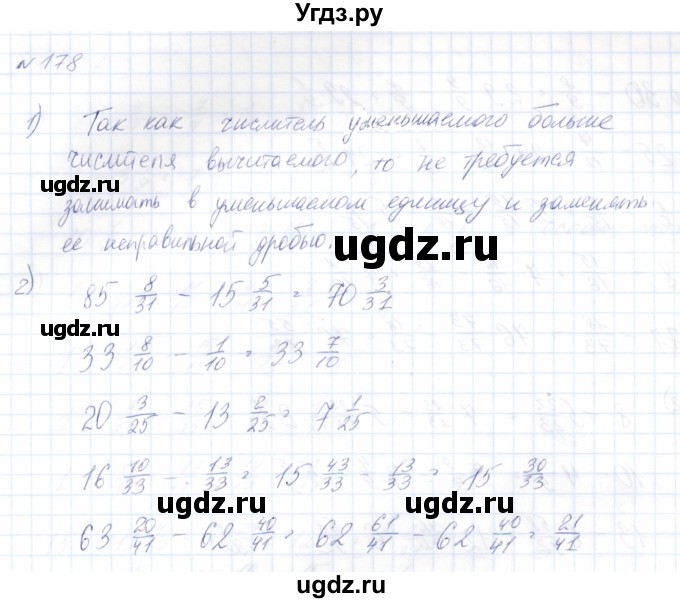 Угдз.ру
№ 178
1) Так как числитель уменьшаемого больше
числителя вычитаемого, то не требуется
занимать в уменьшаемом единицу и заменять
ее неправильной дробью.
2)
85 8/31 - 15 5/31 = 70 3/31
33 8/10 - 1/10 = 33 7/10
20 3/25 - 13 2/25 = 7 1/25
16 10/33 - 13/33 = 15 43/33 - 13/33 = 15 30/33
63 20/41 - 62 40/41 = 62 61/41 - 62 40/41 = 21/41
ugdz.ru
ugdz.ru
ugdz.ru
ugdz.ru
ugdz.ru
ugdz.ru
ugdz.ru
ugdz.ru